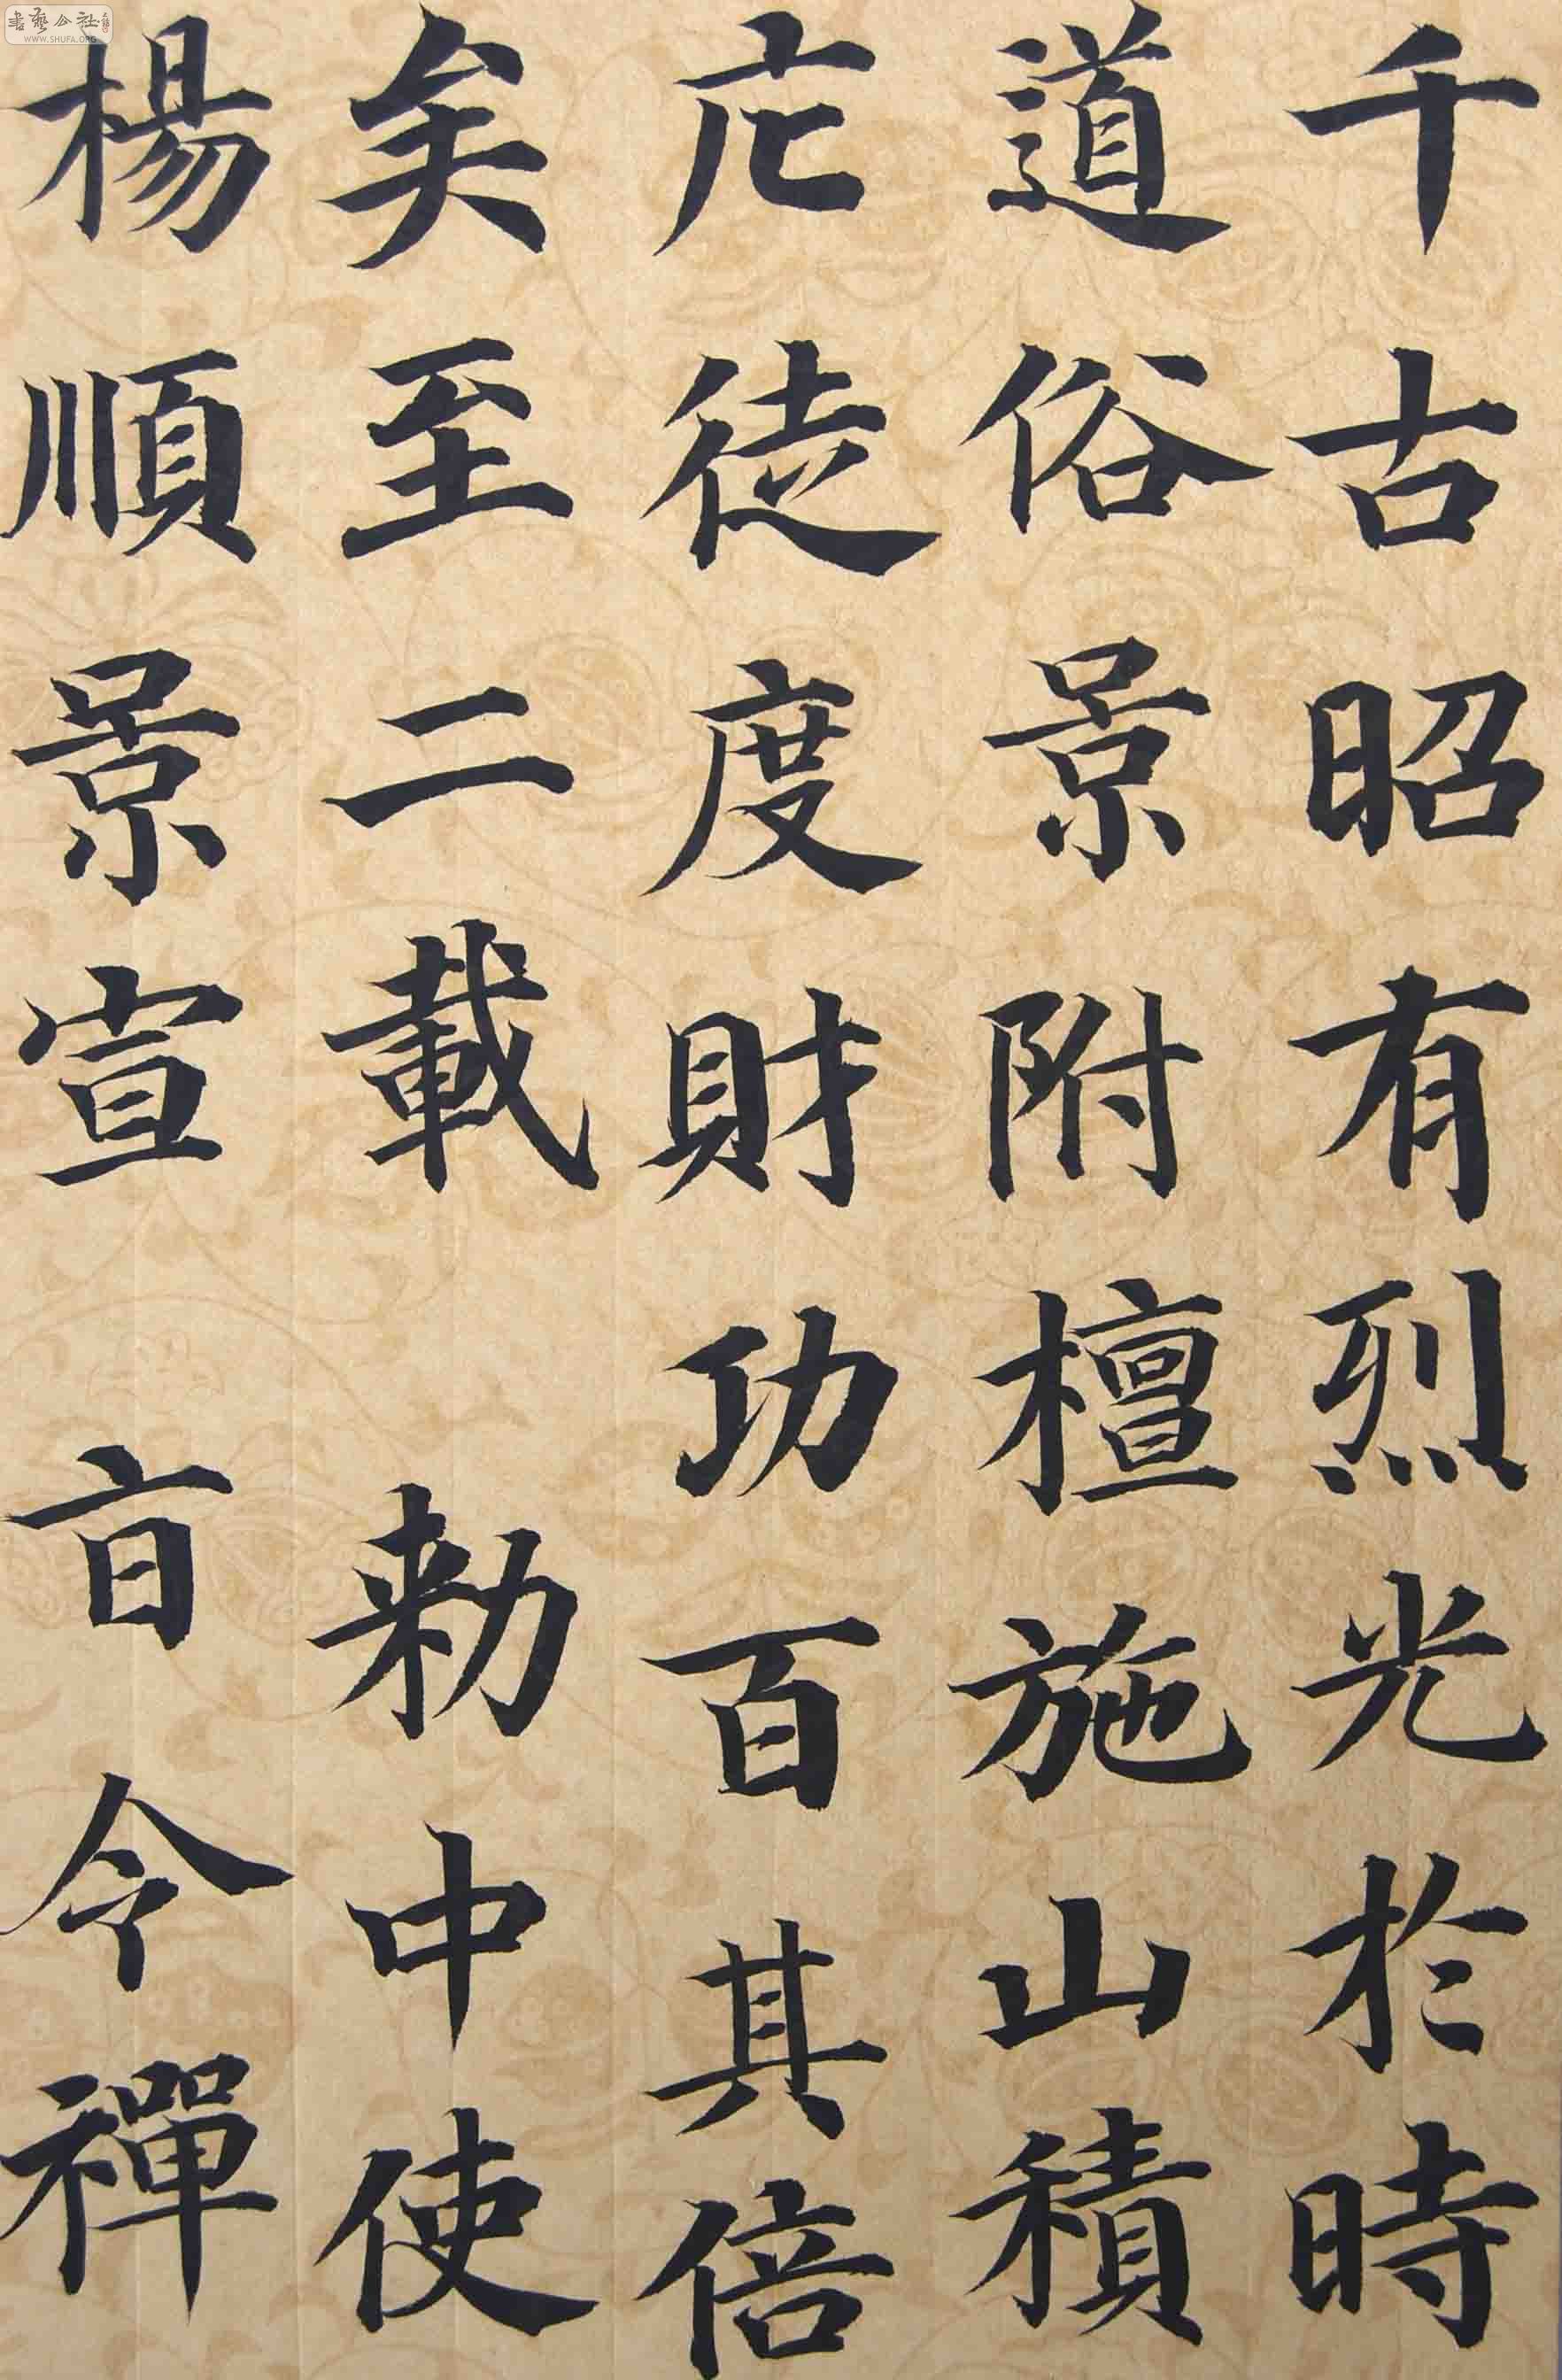 千古昭有烈光於時
道俗景附檀施山積
庀徒度財功百其倍
矣至二載 勑中使
楊順景宣 旨令禪
書藝公社
WWW.SHUFA.ORG